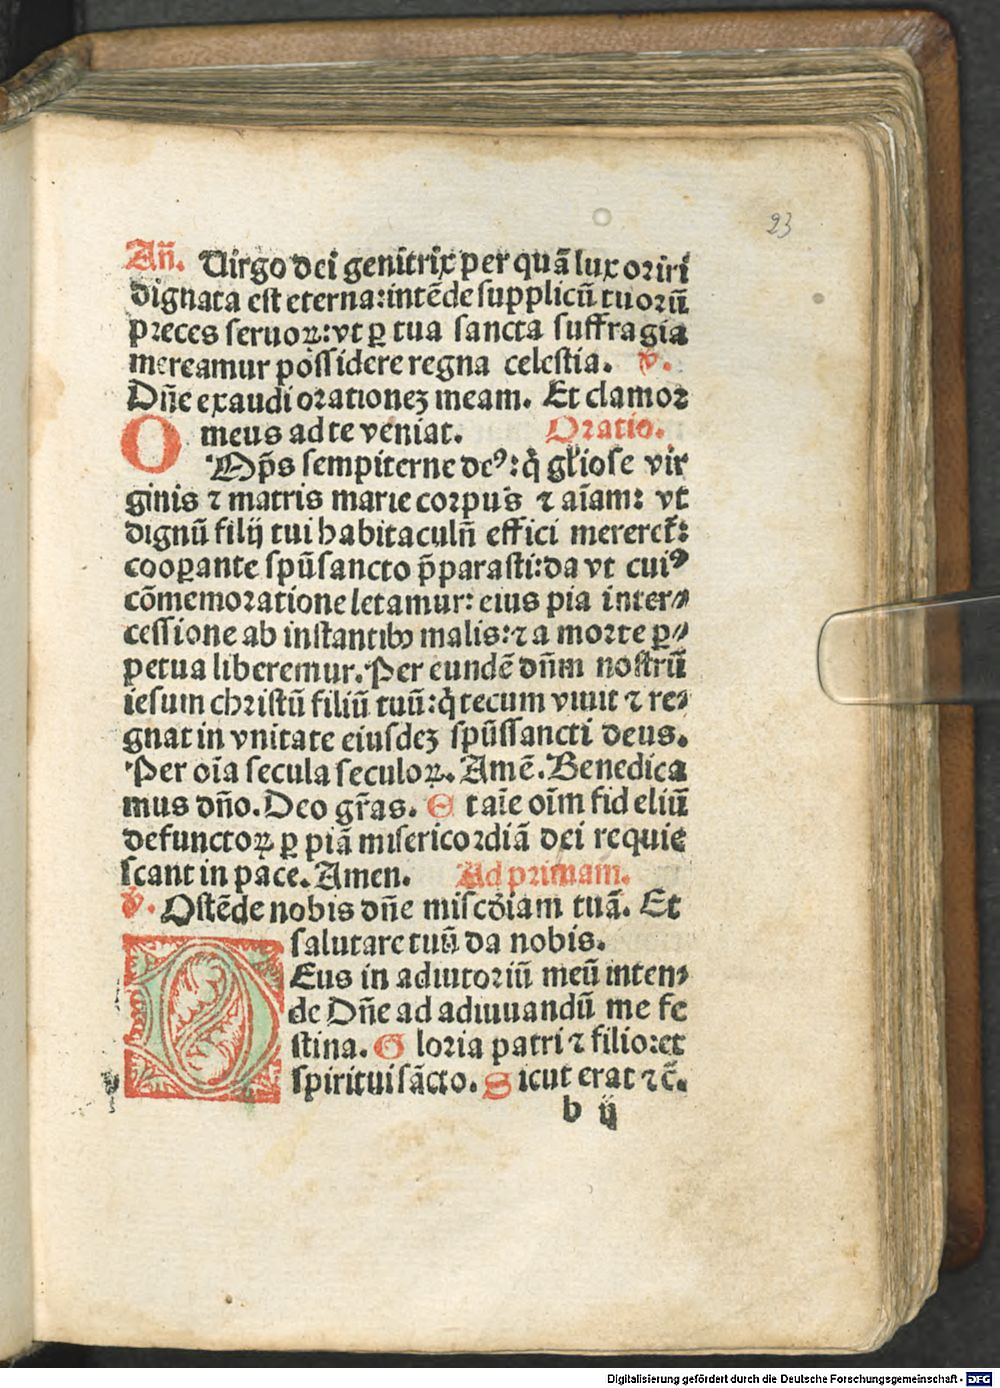 23
Añ. Uirgo dei genitrix per quā lux oriri
dignata est eterna: intēde supplicū tuorū
preces seruoꝝ: vt ꝑ tua sancta suffragia
mereamur possidere regna celestia. ℣.
Dñe exaudi orationeꝫ meam. Et clamor
meus ad te veniat. Oratio.
OMp̄s sempiterne deꝰ: q̇ gl̄iose vir
ginis ⁊ matris marie corpus ⁊ aīam: vt
dignū filij tui habitaculū effici mereret̄:
cooꝑante spūsancto p̄parasti: da vt cuiꝰ
cōmemoratione letamur: eius pia inter⸗
cessione ab instantibꝰ malis: ⁊ a morte ꝑ⸗
petua liberemur. Per eundē dn̄m nostrū
iesum christū filiū tuū: q̇ tecum viuit ⁊ re⸗
gnat in vnitate eiusdeꝫ spūssancti deus.
Per oīa secula seculoꝝ. Amē. Benedica
mus dño. Deo gr̄as. Et aīe oīm fideliū
defunctoꝝ ꝑ piā misericordiā dei requie
scant in pace. Amen. Ad primam.
℣. Ostēde nobis dñe miscd̄iam tuā. Et
salutare tuū da nobis.
DEus in adiutoriū meū inten⸗
de Dñe ad adiuuandū me fe
stina. Gloria patri ⁊ filio: et
spiritui sācto. Sicut erat ⁊c̄.
b ij
Digitalisierung gefördert durch die Deutsche Forschungsgemeinschaft - DFG